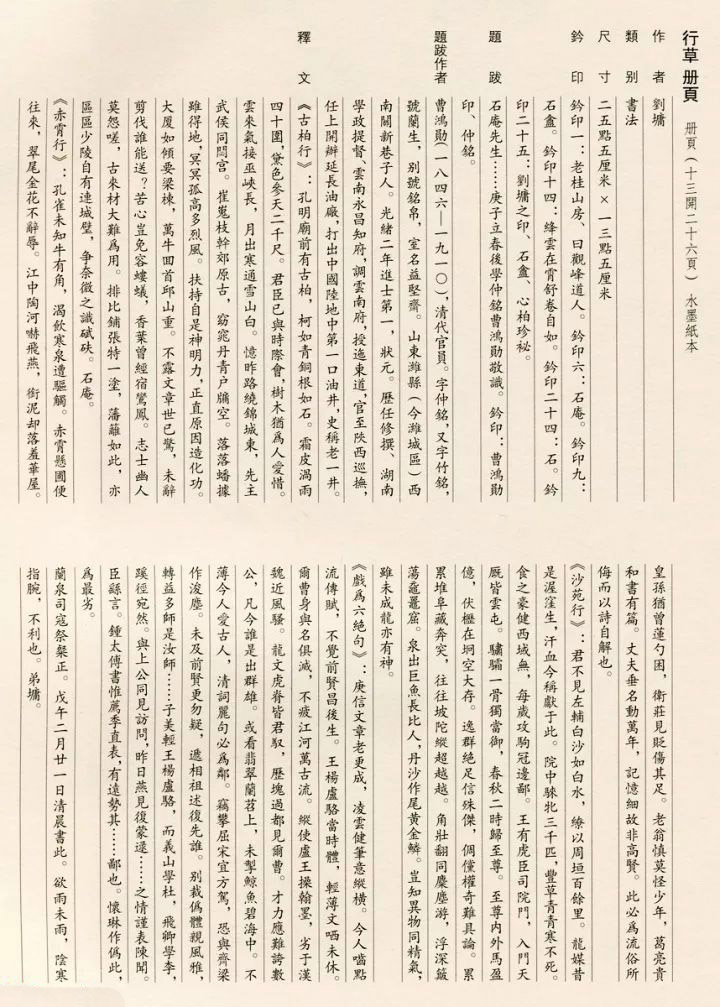 行草 册頁 册頁（十三開二十六頁） 水墨紙本
作 者 劉墉
類 别 書法
尺 寸 二五點五厘米×一三點五厘米
鈐 印 鈐印一：老桂山房、日觀峰道人。鈐印六：石庵。鈐印九：
石盦。鈐印十四：絳雲在霄舒卷自如。鈐印二十四：石。鈐
印二十五：劉墉之印、石盦、心柏珍祕。
題 跋 石庵先生……庚子立春後學仲銘曹鴻勛敬識。鈐印：曹鴻勛
印、仲銘。
題跋作者 曹鴻勛（一八四六—一九一〇），清代官員。字仲銘，又字竹銘，
號蘭生，別號銘帛，室名益堅齋。山東濰縣（今濰城區）西
南關新巷子人。光緒二年進士第一，狀元。歷任修撰、湖南
學政提督、雲南永昌知府，調雲南府，授迤東道，官至陝西巡撫，
任上開辦延長油廠，打出中國陸地中第一口油井，史稱老一井。
釋 文 《古柏行》：孔明廟前有古柏，柯如青銅根如石。霜皮溜雨
四十圍，黛色參天二千尺。君臣已與時際會，樹木猶爲人愛惜。
雲來氣接巫峽長，月出寒通雪山白。憶昨路繞錦城東，先主
武侯同閟宫。崔嵬枝幹郊原古，窈窕丹青户牖空。落落蟠據
雖得地，冥冥孤高多烈風。扶持自是神明力，正直原因造化功。
大厦如傾要梁棟，萬牛回首邱山重。不露文章世已驚，未辭
剪伐誰能送？苦心豈免容螻蟻，香葉曾經宿鸞鳳。志士幽人
莫怨嗟，古來材大難爲用。排比鋪張特一塗，藩籬如此，亦
區區少陵自有連城璧，争奈微之識碔砆。石庵。
《赤霄行》：孔雀未知牛有角，渴飲寒泉遭驅觸。赤霄懸圃便
往來，翠尾金花不辭辱。江中陶河嚇飛燕，銜泥却落羞華屋。
皇孫猶曾蓮勺困，衛莊見貶傷其足。老翁慎莫怪少年，葛亮貴
和書有篇。丈夫垂名動萬年，記憶細故非高賢。此必爲流俗所
侮而以詩自解也。
《沙苑行》：君不見左輔白沙如白水，繚以周垣百餘里。龍媒昔
是渥窪生，汗血今稱獻于此。院中騋牝三千匹，豐草青青寒不死。
食之豪健西域無，每歲攻駒冠邊鄙。王有虎臣司院門，入門天
厩皆雲屯。驌驦一骨獨當御，春秋二時歸至尊。至尊内外馬盈
億，伏櫪在坰空大存。逸群絶足信殊傑，倜儻權奇難具論。累
累堆阜藏奔突，往往坡陀縱超越越。角壯翻同麋塵游，浮深簸
蕩黿鼉窟。泉出巨魚長比人，丹沙作尾黄金鱗。豈知異物同精氣，
雖未成龍亦有神。
《戲爲六絶句》：庚信文章老更成，凌雲健筆意縱横。今人嗤點
流傳賦，不覺前賢畏後生。王楊盧駱當時體，輕薄文哂未休。
爾曹身與名俱滅，不疲江河萬古流。縱使盧王操翰墨，劣于漢
魏近風騷。龍文虎脊皆君馭，歷塊過都見爾曹。才力應難誇數
公，凡今誰是出群雄。或看翡翠蘭苕上，未掣鯨魚碧海中。不
薄今人愛古人，清詞麗句必爲鄰。竊攀屈宋宜方駕，恐與齊梁
作浚塵。未及前賢更勿疑，遞相祖述復先誰。别裁僞體親風雅，
轉益多師是汝師……子美輕王楊盧駱，而義山學杜，飛卿學李，
蹊徑宛然。與上公同見訪問，昨日燕見後蒙逮……之情謹表陳聞。
臣繇言。鍾太傅書惟薦季直表，有遠勢其……鄙也。懷琳作僞此，
爲最劣。
蘭泉司寇祭槩正。戊午二月廿一日清晨書此。欲雨未雨，陰寒
指腕，不利也。弟墉。